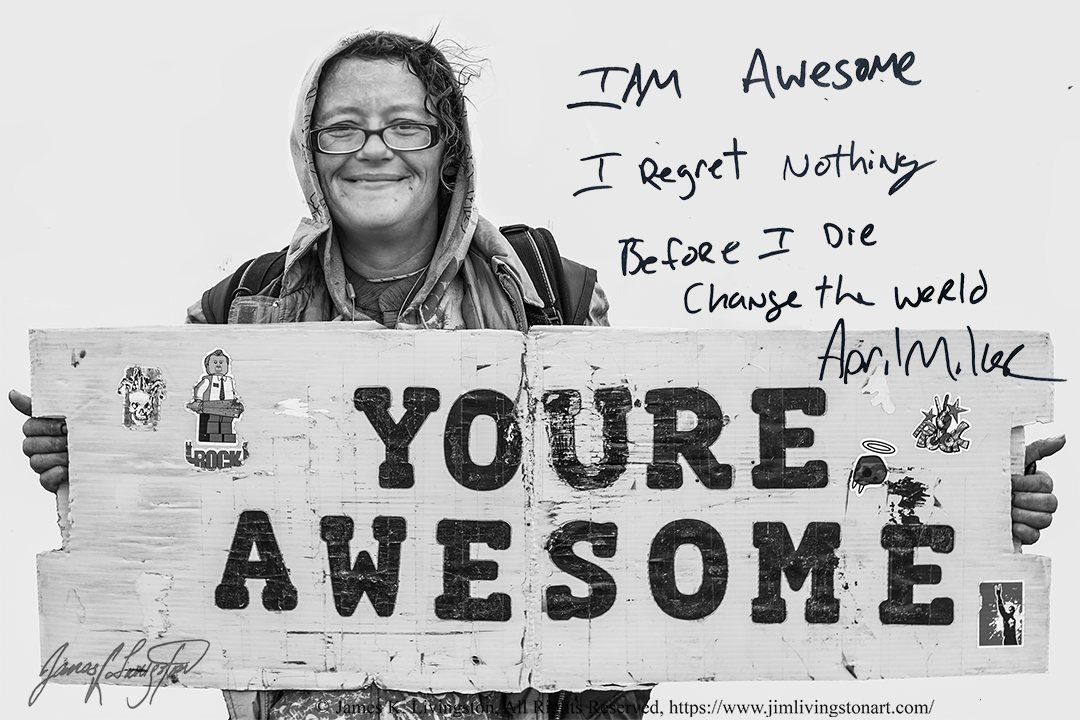 I AM Awesome
I Regret Nothing
Before I Die
Change the world
April Miller
YOURE
AWESOME
ROCK
James K Livingston
© James K. Livingston, All Rights Reserved, https://www.jimlivingstonart.com/